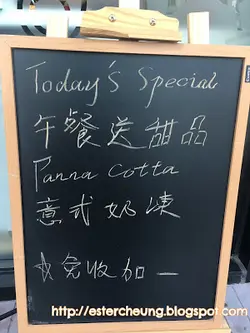 Today's Special
午餐送甜品
Panna Cotta
意式奶凍
免收加一
http://estercheung.blogspot.com